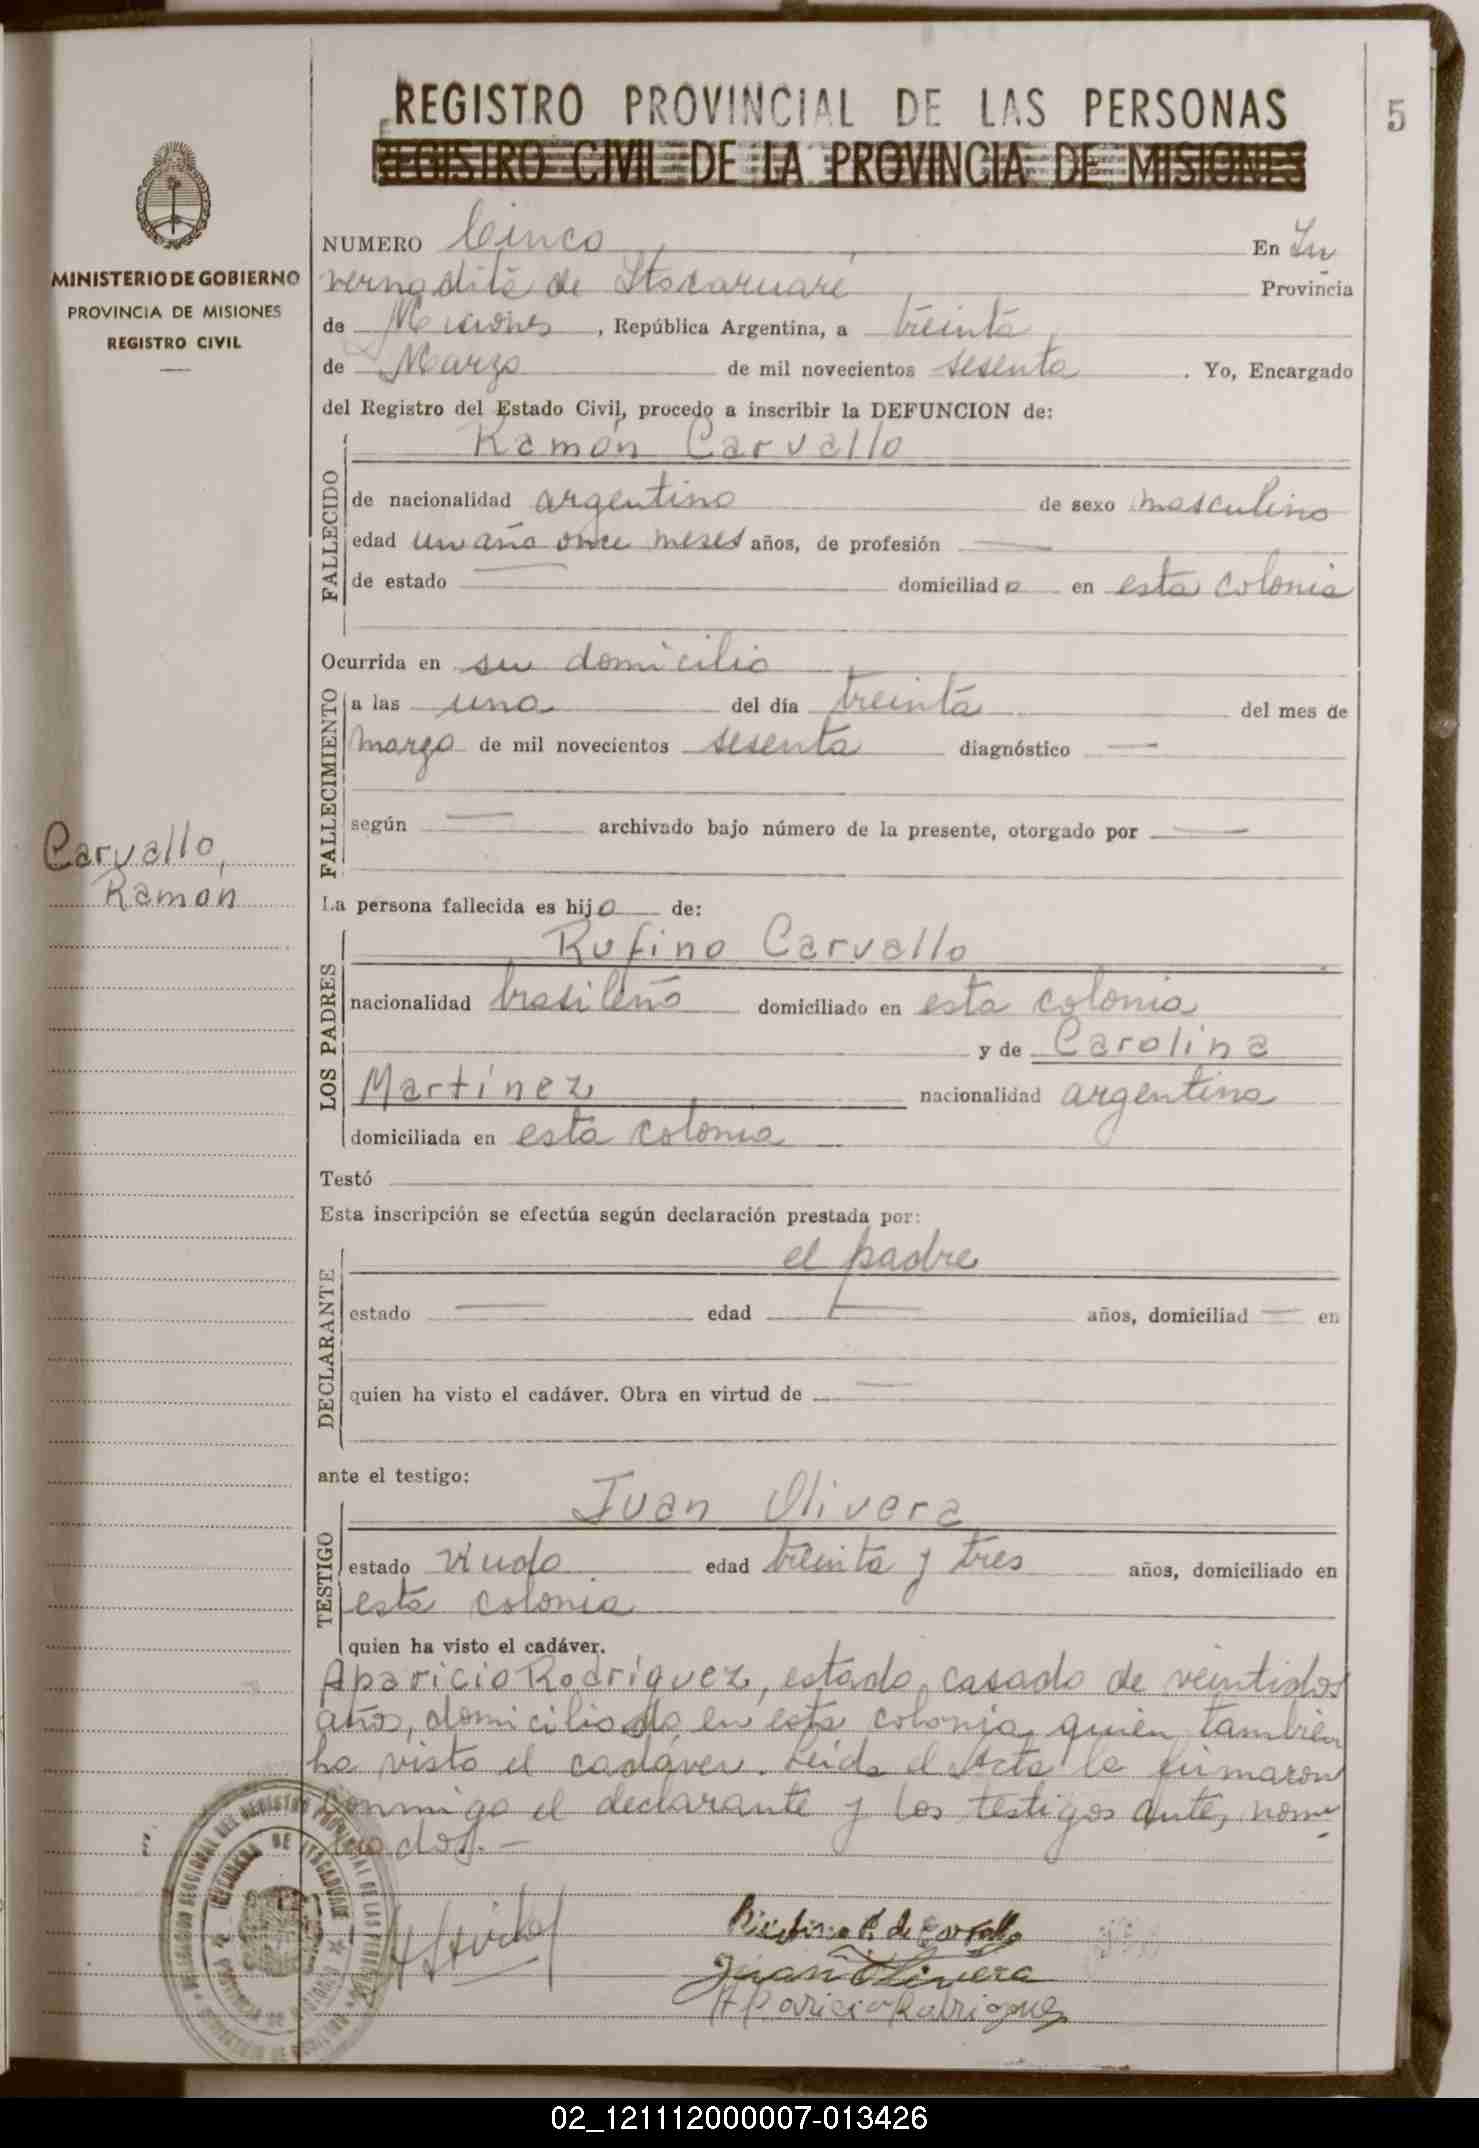 REGISTRO PROVINCIAL DE LAS PERSONAS
REGISTRO CIVIL DE LA PROVINCIA DE MISIONES
5
MINISTERIO DE GOBIERNO
PROVINCIA DE MISIONES
REGISTRO CIVIL
NUMERO Cinco En In
vernadita de Itacaruaré Provincia
de Misiones, República Argentina, a treinta
de Marzo de mil novecientos sesenta. Yo, Encargado
del Registro del Estado Civil, procedo a inscribir la DEFUNCION de:
Ramón Carvallo
FALLECIDO
de nacionalidad argentino de sexo masculino
edad un año once meses años, de profesión —
de estado — domiciliado en esta colonia
Ocurrida en su domicilio
FALLECIMIENTO
a las una del día treinta del mes de
marzo de mil novecientos sesenta diagnóstico —
según — archivado bajo número de la presente, otorgado por —
Carvallo,
Ramon
La persona fallecida es hijo de:
LOS PADRES
Rufino Carvallo
nacionalidad brasileño domiciliado en esta colonia
y de Carolina
Martínez nacionalidad argentina
domiciliada en esta colonia
Testó
Esta inscripción se efectúa según declaración prestada por:
DECLARANTE
el padre
estado — edad — años, domiciliad — en
quien ha visto el cadáver. Obra en virtud de —
ante el testigo:
TESTIGO
Juan Olivera
estado viudo edad treinta y tres años, domiciliado en
esta colonia
quien ha visto el cadáver.
Aparicio Rodríguez, estado casado de veintidos
años, domiciliado en esta colonia quien también
ha visto el cadáver. Leída el Acta la firmaron
conmigo el declarante y los testigos antes nom
brados.—
de Carvallo
Juan Olivera
Aparicio Rodriguez
02_121112000007-013426